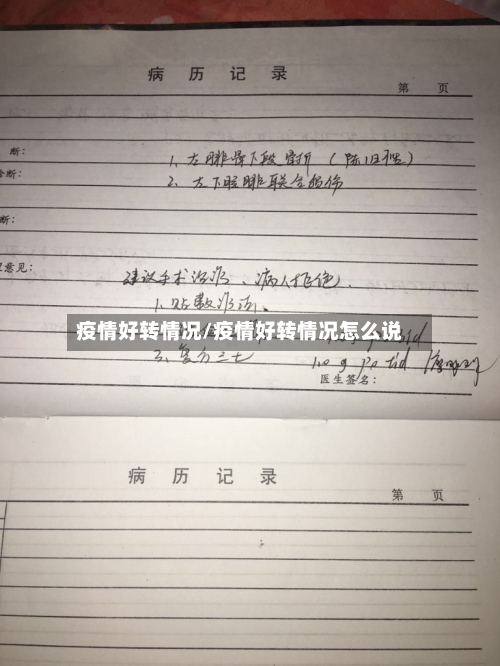 病 历 记 录
第 页
断:
1、左腓骨下段骨折（陈旧性）
诊断:
2、左下胫腓联合损伤
断:
意见:
建议手术治疗、病人拒绝.
1.贴敷疗法.
疫情好转情况/疫情好转情况怎么说
3.复方三七
po tid
医生签名:
病 历 记 录
第 页